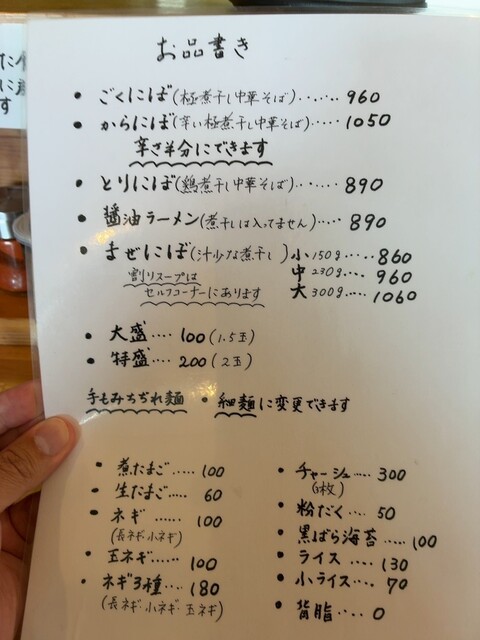 お品書き
・ごくにぼ(極煮干し中華そば)……960
・からにぼ(辛い極煮干し中華そば)……1050
辛さ半分にできます
・とりにぼ(鶏煮干し中華そば)……890
・醤油ラーメン(煮干しは入ってません)……890
・まぜにぼ(汁少な煮干し)小150g……860
割りスープは 中230g……960
セルフコーナーにあります 大300g……1060
・大盛……100(1.5玉)
・特盛……200(2玉)
手もみちぢれ麺・細麺に変更できます
・煮たまご……100
・生たまご……60
・ネギ……100
(長ネギ・小ネギ)
・玉ネギ……100
・ネギ3種……180
(長ネギ・小ネギ・玉ネギ)
・チャーシュー……300
・粉だく……50
・黒ばら海苔……100
・ライス……130
・小ライス……70
・背脂……0